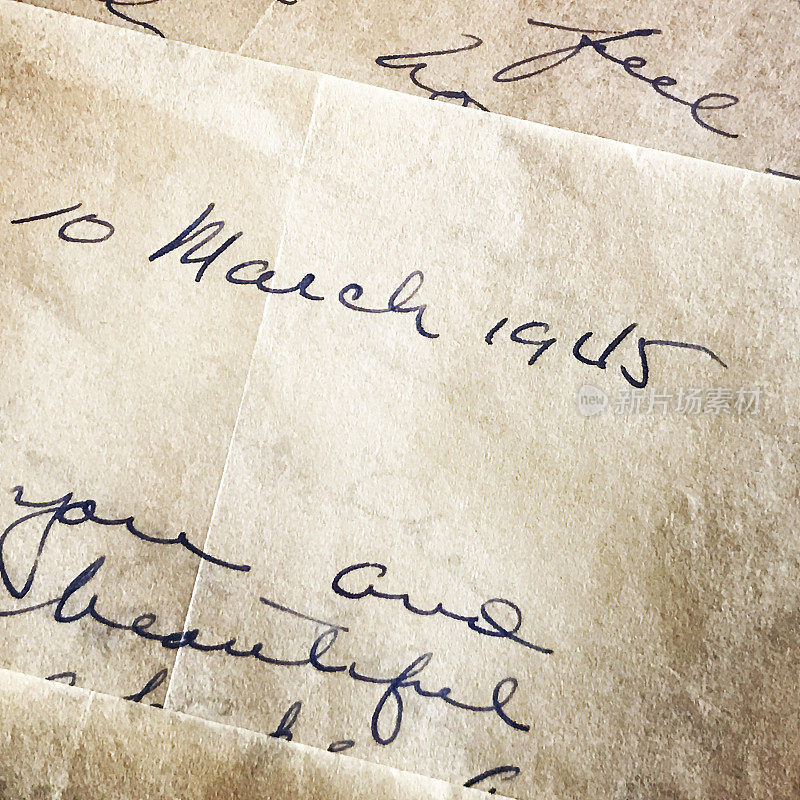 feel
10 March 1945
new 新片场素材
you and
beautiful